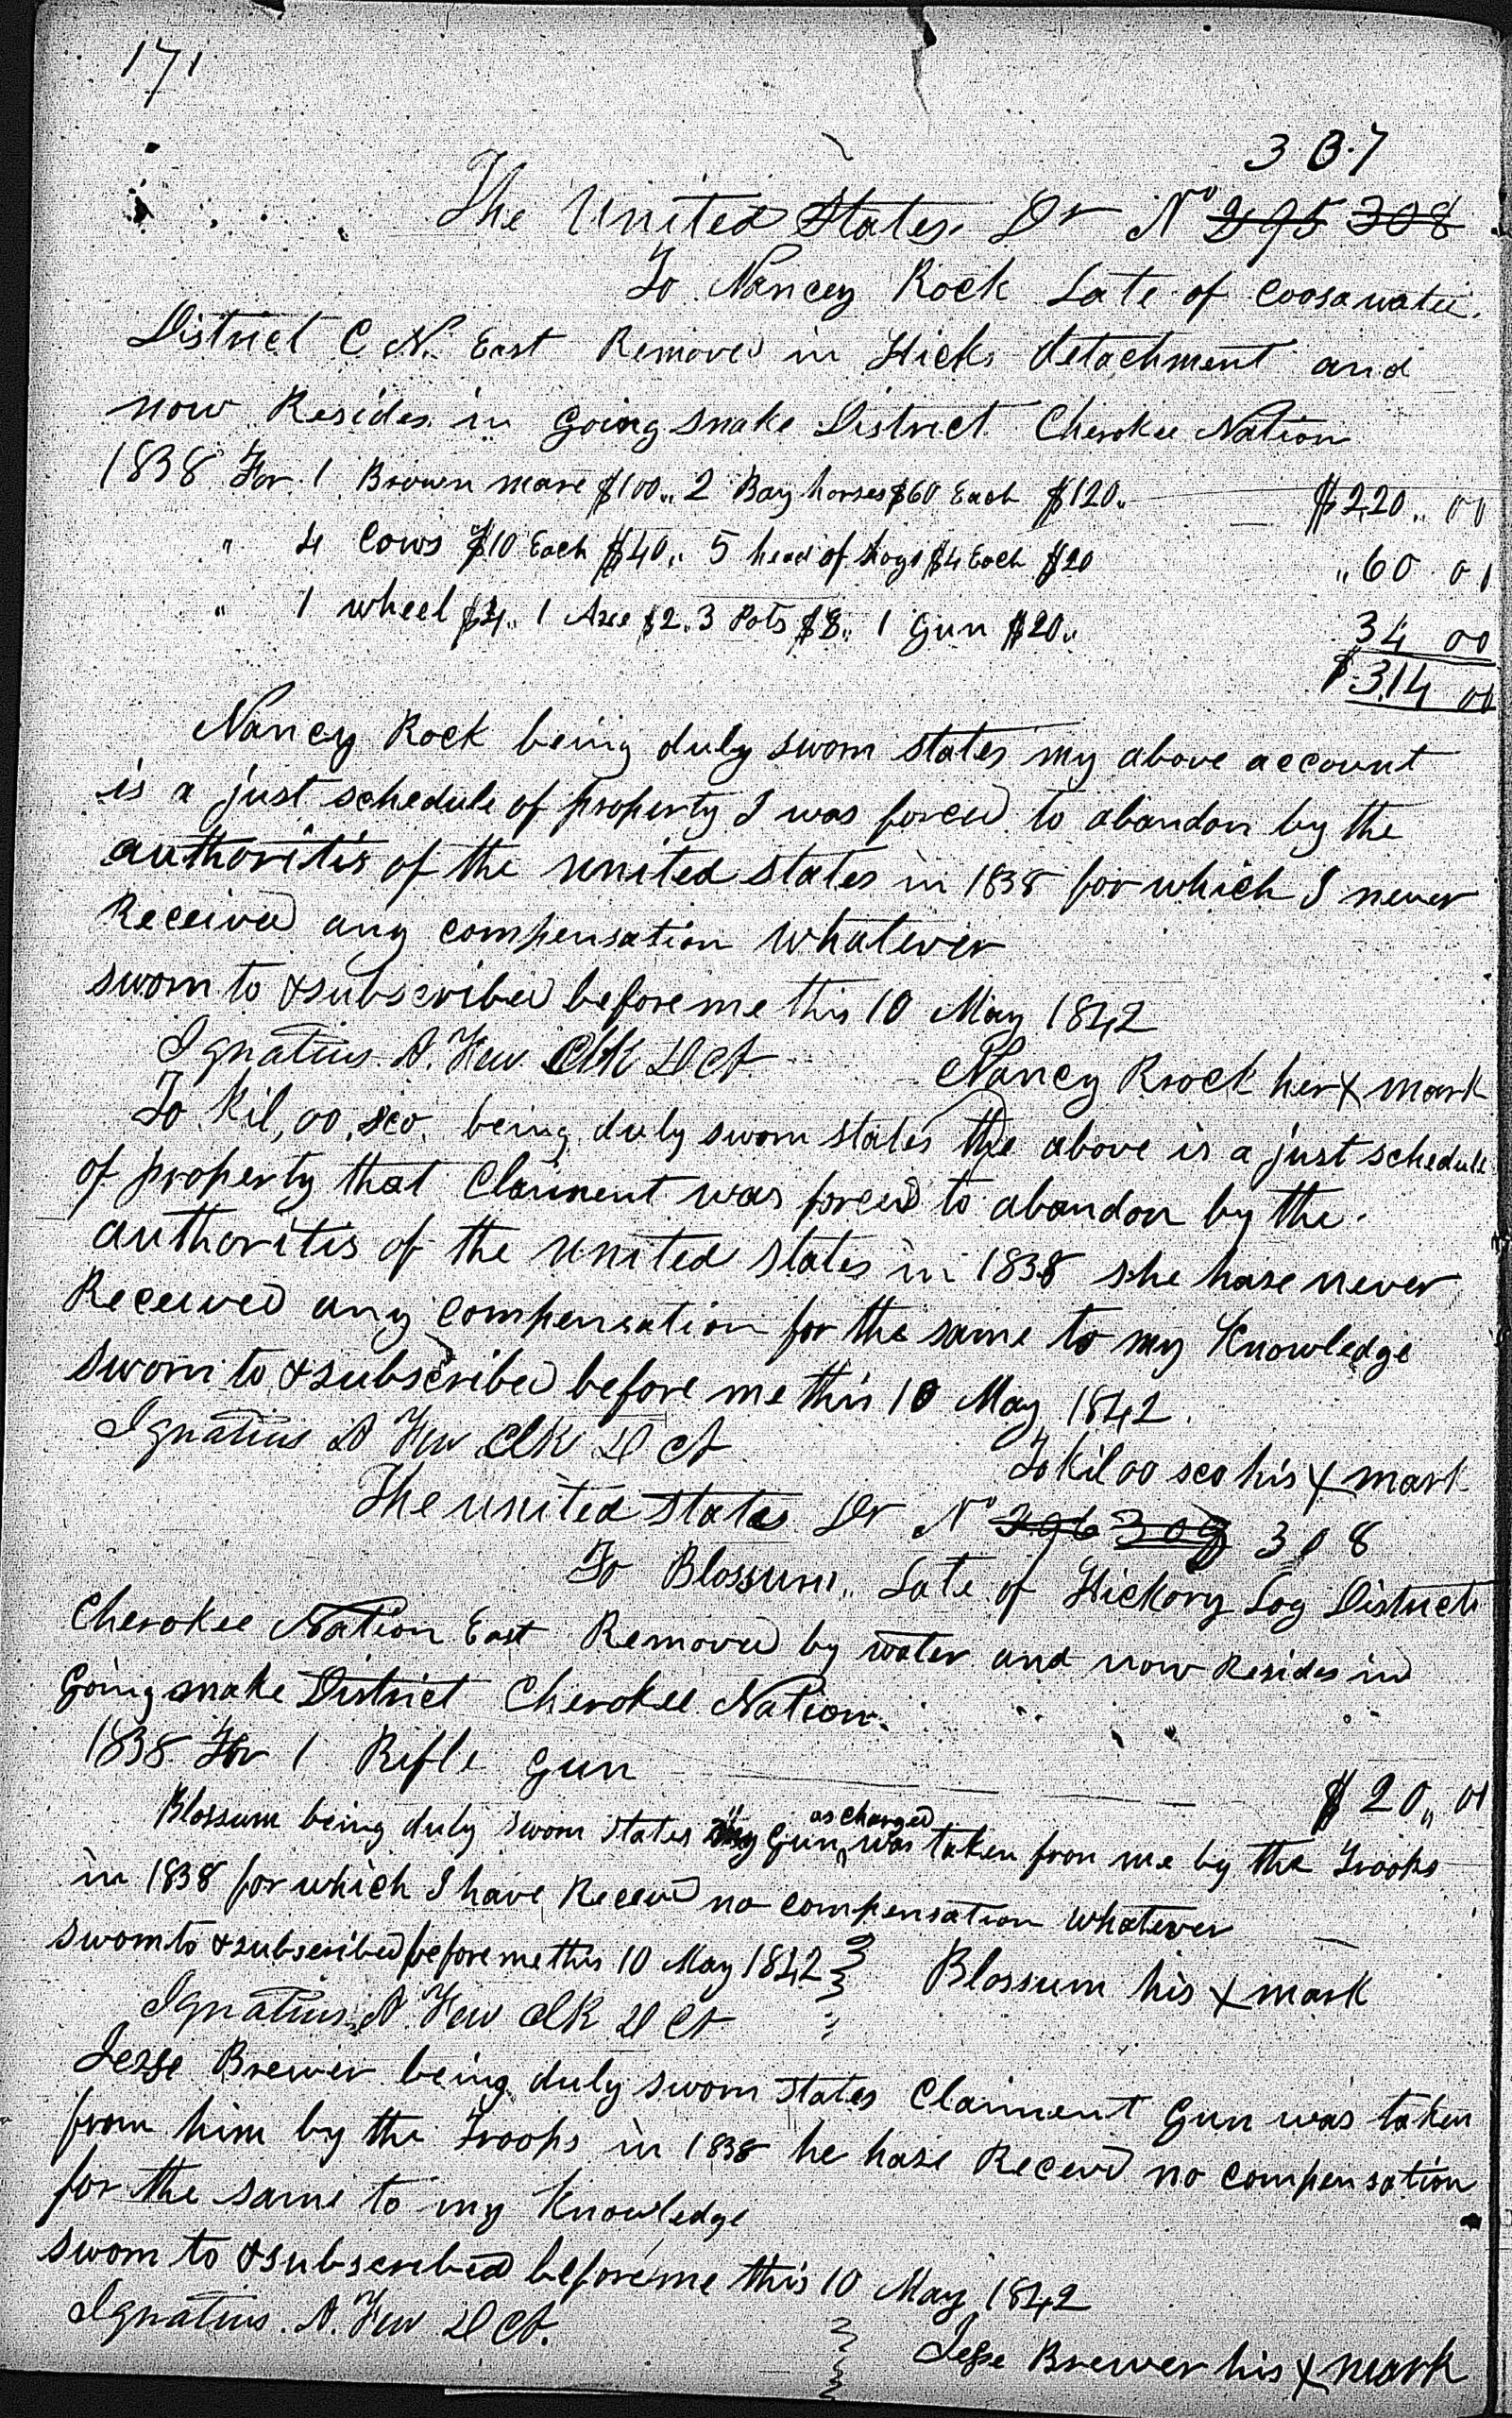 171
307
The United States Dr No 295 308
To Nancy Rock Late of Coosawatee
District C N. East Removed in Hicks detachment and
now Resides in Going Snake District Cherokee Nation
1838 For 1 Brown mare $100,, 2 Bay horses $60 Each $120,, $220,, 00
" 4 Cows $10 Each $40,, 5 head of hogs $4 Each $20 ,, 60 00
" 1 wheel $4,, 1 Axe $2,, 3 Pots $8,, 1 Gun $20,, 34 00
$314 00
Nancy Rock being duly sworn states my above account
is a just schedule of property I was forced to abandon by the
authoritis of the united states in 1838 for which I never
Received any compensation whatever
sworn to & subscribed before me this 10 May 1842
Ignatius A. Few Clk D Ct Nancy Rock her X mark
To Kil, oo, sco. being duly sworn states the above is a just schedule
of property that Claiment was forced to abandon by the
authoritis of the united states in 1838 she hase never
Received any compensation for the same to my Knowledge
sworn to & subscribed before me this 10 May 1842.
Ignatius A Few Clk D Ct To Kil oo sco his X mark
The united states Dr No 296 309 308
To Blossum,, Late of Hickory Log District
Cherokee Nation East Removed by water and now Resides in
Going snake District Cherokee Nation.
1838 For 1 Rifle Gun $20,, 00
Blossum being duly sworn states my Gun as charged was taken from me by the Troops
in 1838 for which I have Received no compensation whatever
sworn to & subscribed before me this 10 May 1842 Blossum his X mark
Ignatius A Few Clk D Ct
Jesse Brewer being duly sworn states Claiment Gun was taken
from him by the Troops in 1838 he hase Receivd no compensation
for the same to my Knowledge
sworn to & subscribed before me this 10 May 1842
Ignatius. A. Few D Ct. Jesse Brewer his X mark